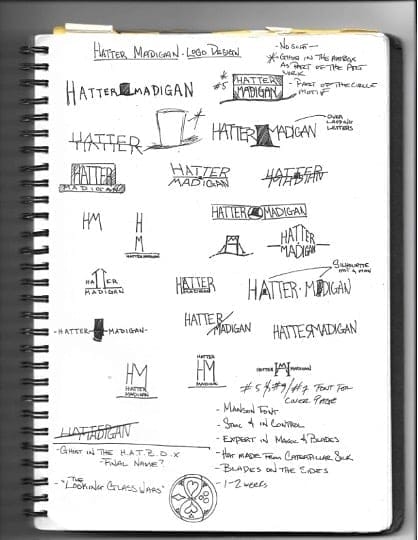 HATTER MADIGAN - LOGO DESIGN
- NO SUIT -
* GHOST IN THE HATBOX
AS PART OF THE ART
WORK
- PART OF THE CIRCLE
MOTIF
HATTER MADIGAN
* #5
HATTER
MADIGAN
HATTER
HATTER MADIGAN
OVER
LAPPING
LETTERS
HATTER
MADIGAN
HATTER
MADIGAN
HATTER
MADIGAN
HM
H
M
HATTER MADIGAN
HATTER MADIGAN
HATTER
MADIGAN
SILHOUETTE
HATTER
MADIGAN
HATTER
MADIGAN
HATTER · MADIGAN
- HATTER MADIGAN -
HATTER
MADIGAN
HATTERMADIGAN
HM
HATTER
MADIGAN
HATTER
HM
MADIGAN
HATTER HM MADIGAN
FONT FOR
COVER PAGE
HATTER
MADIGAN
- GHOST IN THE H.A.T.B.O.X
- FINAL NAME?
- THE
"LOOKING GLASS WARS"
- MANSON FONT
- STOIC & IN CONTROL
- EXPERT IN MAGIC & BLADES
- HAT MADE FROM CATERPILLAR SILK
- BLADES ON THE SIDES
- 1-2 WEEKS